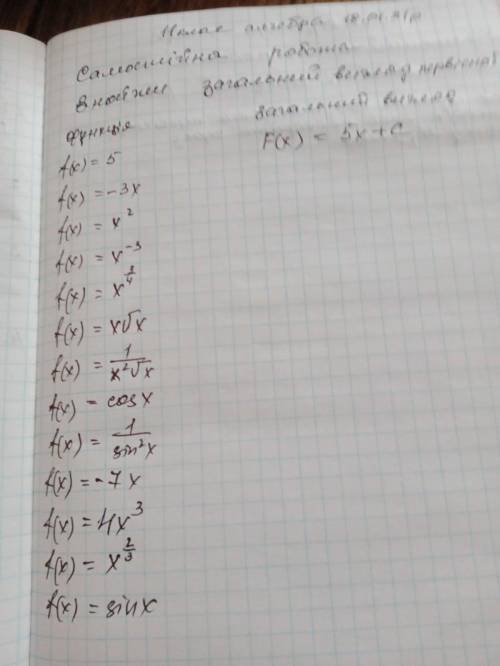 алгебра
Самостійна робота
Знайти загальний вигляд первісної
функція загальний вигляд
f(x) = 5 F(x) = 5x + C
f(x) = -3x
f(x) = x²
f(x) = x⁻³
f(x) = x^
f(x) = x√x
f(x) = 1/(x²√x)
f(x) = cosx
f(x) = 1/(sin²x)
f(x) = -7x
f(x) = 4x³
f(x) = x^(2/3)
f(x) = sinx